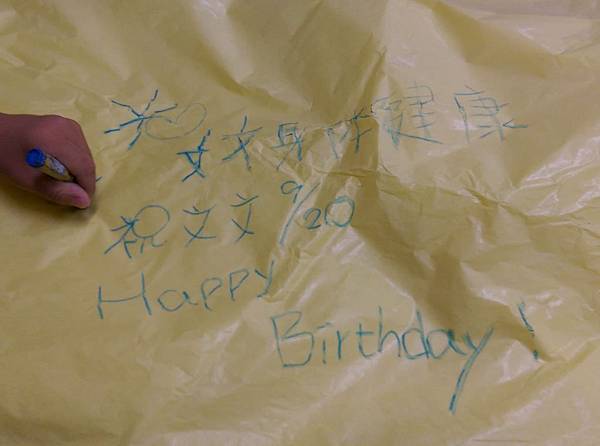 祝文文身体健康
祝文文 9/20
Happy
Birthday!